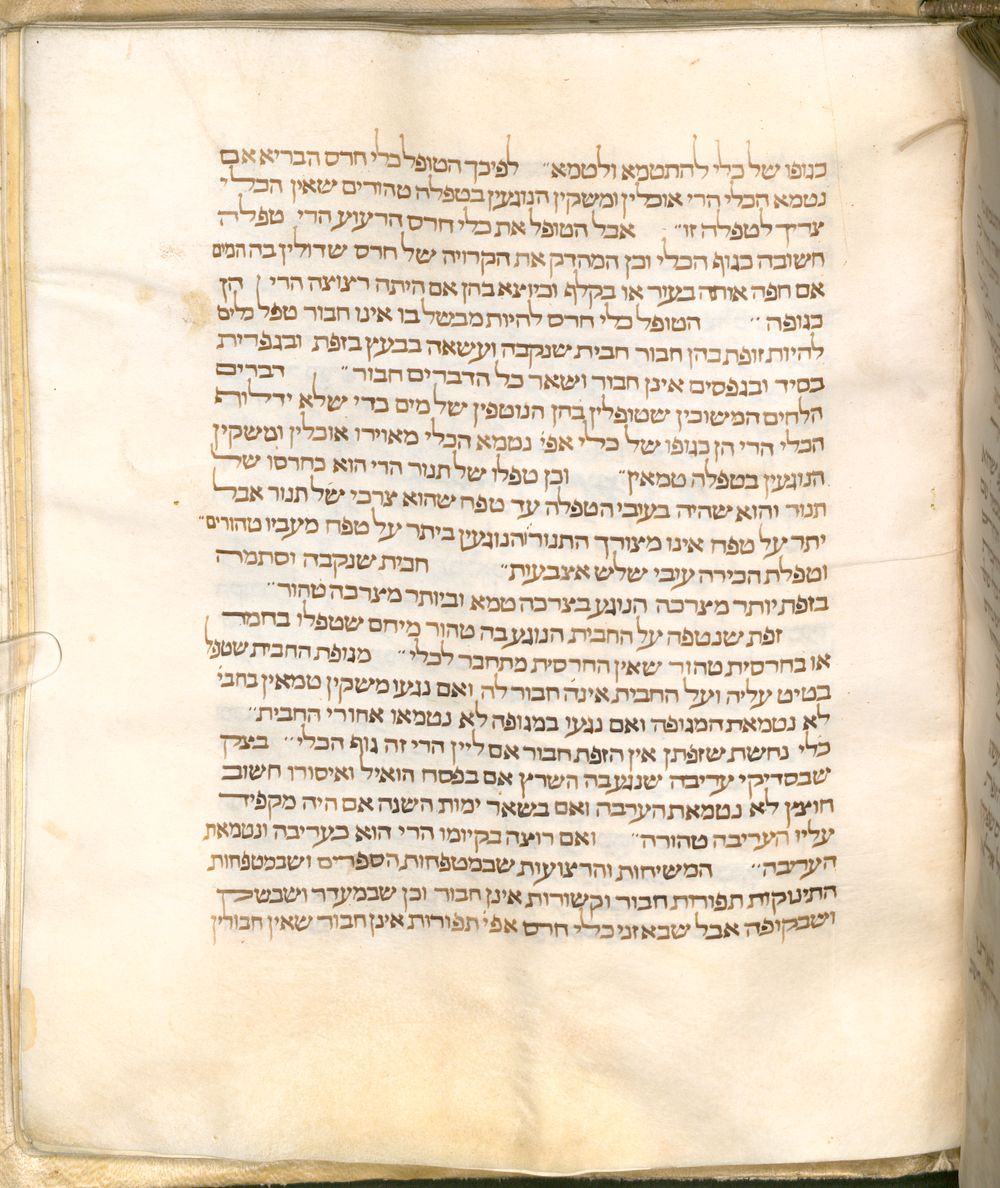 כגופו של כלי להתטמא ולטמא״ לפיכך הטופל כלי חרס הבריא אם
נטמא הכלי הרי אוכלין ומשקין הנוגעין בטפלה טהורים שאין הכלי
צריך לטפלה זו״ אבל הטופל את כלי חרס הרעוע הרי טפלה
חשובה כגוף הכלי וכן המהדק את הקרויה של חרס שדולין בה המים
אם חפה אותה בעור או בקלף וכיוצא בהן אם היתה רצוצה הרי הן
כגופה״ הטופל כלי חרס להיות מבשל בו אינו חבור טפל כלים
להיות זופת בהן חבור חבית שנקבה ועשאה בבעץ בזפת ובגפרית
בסיד ובגפסים אינן חבור ושאר כל הדברים חבור״ דברים
הלחים המישוכין שטופלין בהן הנוטפין של מים כדי שלא ידלוף
הכלי הרי הן כגופו של כלי אפי׳ נטמא הכלי מאוירו אוכלין ומשקין
הנוגעין בטפלה טמאין״ וכן טפלו של תנור הרי הוא כחרסו של
תנור והוא שהיה בעובי הטפלה עד טפח שהוא צרכי של תנור אבל
יתר על טפח אינו מצורך התנור והנוגעין ביתר על טפח מעביו טהורים״
וטפלת הכירה עובי שלש אצבעות״ חבית שנקבה וסתמה
בזפת יותר מצרכה הנוגע בצרכה טמא וביותר מצרכה טהור״
זפת שנטפה על החבית הנוגע בה טהור מיחם שטפלו בחמה
או בחרסית טהור שאין החרסית מתחבר לכלי״ מגופת החבית שטפל
בטיט עליה ועל החבית אינה חבור לה ואם נגעו משקין טמאין בחבי׳
לא נטמאת המגופה ואם נגעו במגופה לא נטמאו אחורי החבית״
כלי נחשת שזפתן אין הזפת חבור אם ליין הרי זה גוף הכלי״ בצק
שבסדיקי עריבה שנגע בה השרץ אם בפסח הואיל ואיסורו חשוב
חוצץ לא נטמאת הערבה ואם בשאר ימות השנה אם היה מקפיד
עליו העריבה טהורה״ ואם רוצה בקיומו הרי הוא כעריבה ונטמאת
העריבה״ המשיחות והרצועות שבמטפחות הספרים ושבמטפחות
התינוקות תפורות חבור וקשורות אינן חבור וכן שבמעדר ושבשק
ושבקופה אבל שבאזני כלי חרס אפי׳ תפורות אינן חבור שאין חבורין